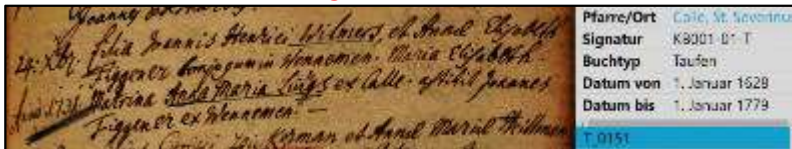 Joannes
24: Xbr: filia Joannis Henrici Wilmers et Annæ Elisabeth
Figgener conjugum in Wennemen. Maria Elisabeth.
Anno 1731 Matrina Anna Maria ex Calle. astitit Joannes
Figgener ex Wennemen. —
Korman et Annæ Mariæ
Pfarre/Ort Calle, St. Severinus
Signatur KB001-01-T
Buchtyp Taufen
Datum von 1. Januar 1628
Datum bis 1. Januar 1779
T_0151